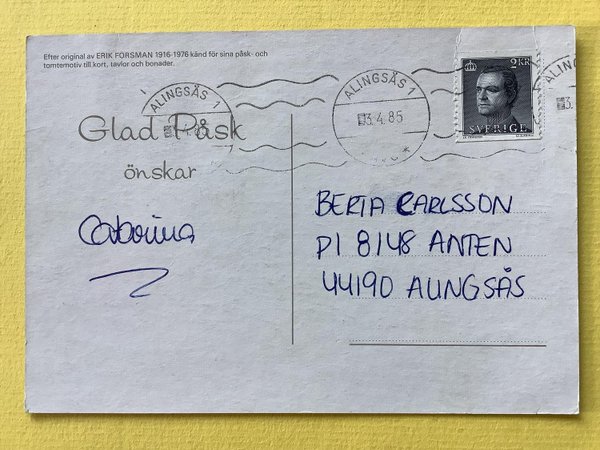 Efter original av ERIK FORSMAN 1916-1976 känd för sina påsk- och
tomtemotiv till kort, tavlor och bonader.
2 KR
SVERIGE
ALINGSÅS 1
ALINGSÅS 1
3.4.85
ALING
Glad Påsk
önskar
BERTA CARLSSON
Pl 8148 ANTEN
44190 ALINGSÅS